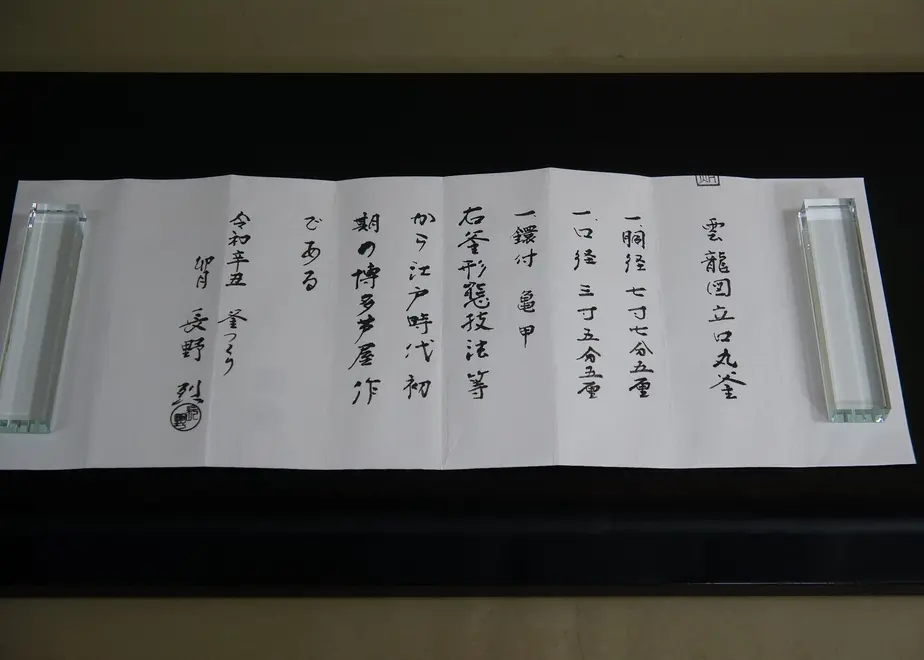 雲龍図立口丸釜
一、胴径 七寸七分五厘
一、口径 三寸五分五厘
一、鐶付 亀甲
右釜形態技法等
から江戸時代初
期の博多芦屋作
である
令和辛丑 釜つくり
卯月 長野 烈